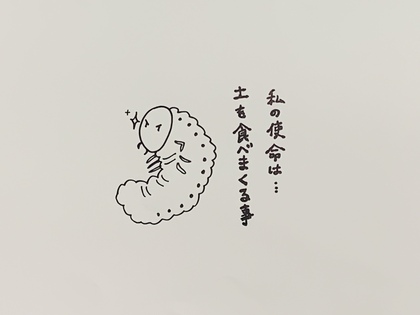 私の使命は…
土を食べまくる事